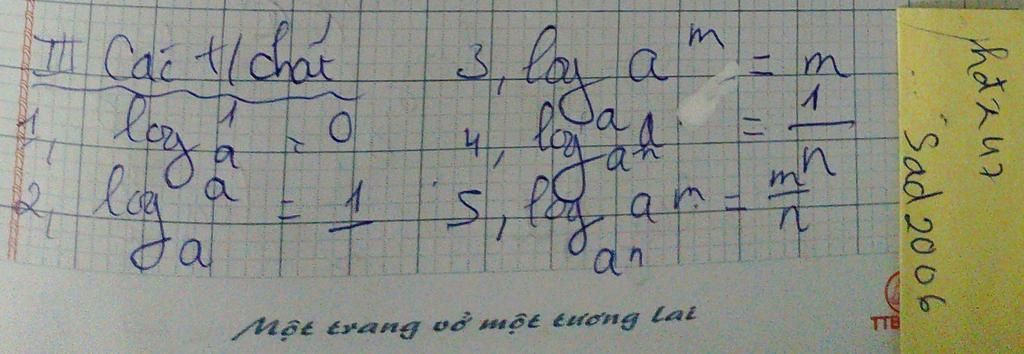 III Các t/chất
1, log_a 1 = 0
2, log_a a = 1
3, log_a a^m = m
4, log_{a^n} a = 1/n
5, log_{a^n} a^m = m/n
Một trang vở một tương lai
Sad2006